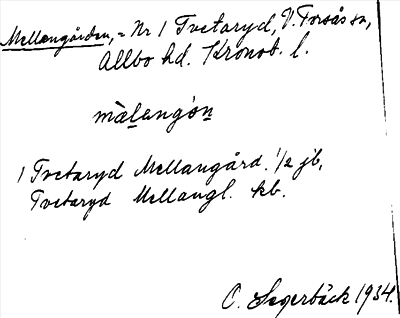 Mellangården, = Nr 1 Tvetaryd, V. Torsås sn,
Allbo hd. Kronob. l.
màlango̊n
1 Tvetaryd Mellangård. 1/2 jb,
Tvetaryd Mellangl. kb.
C. Segerbäck 1934.